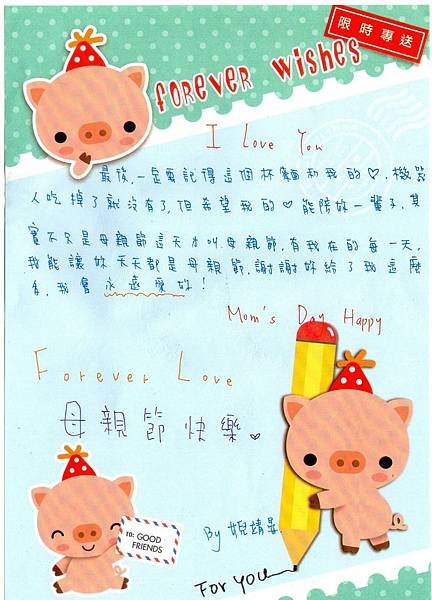 限時專送
forever wishes
I love You
最後,一定要記得這個杯麵和我的♡,機器
人吃掉了就沒有了,但希望我的♡能陪妳一輩子,其
實不只是母親節這天才叫母親節,有我在的每一天,
我能讓妳天天都是母親節,謝謝妳給了我這麼
多,我會永遠愛妳!
Mom's Day Happy
Forever Love
母親節快樂♡
TO: GOOD
FRIENDS
By
For you